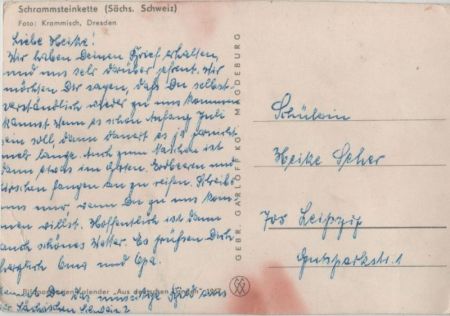 Schrammsteinkette (Sächs. Schweiz)
Foto: Krommisch, Dresden
Liebe Heike!
Wir haben Deinen Brief erhalten,
und uns sehr darüber gefreut. Wir
möchten Dir sagen, daß Du selbst-
verständlich wieder zu uns kommen
kannst. Wenn es schon Anfang Juli
sein soll, dann dauert es ja garnicht
mehr lange. Auch zum Naschen ist
dann etwas im Garten. Erdbeeren und
Kirschen fangen an zu reifen. Schreibe
uns nur wann Du zu uns kom-
men willst. Hoffentlich ist dann
auch schönes Wetter. Es grüßen Dich
herzlich Oma und Opa.
Bildpostkarten-Kalender „Aus deutschen 1967
Du das
Sächsischen Schweiz?
GEBR. GARLOFF KG · MAGDEBURG
Schülerin
Heike Scher
703 Leipzig